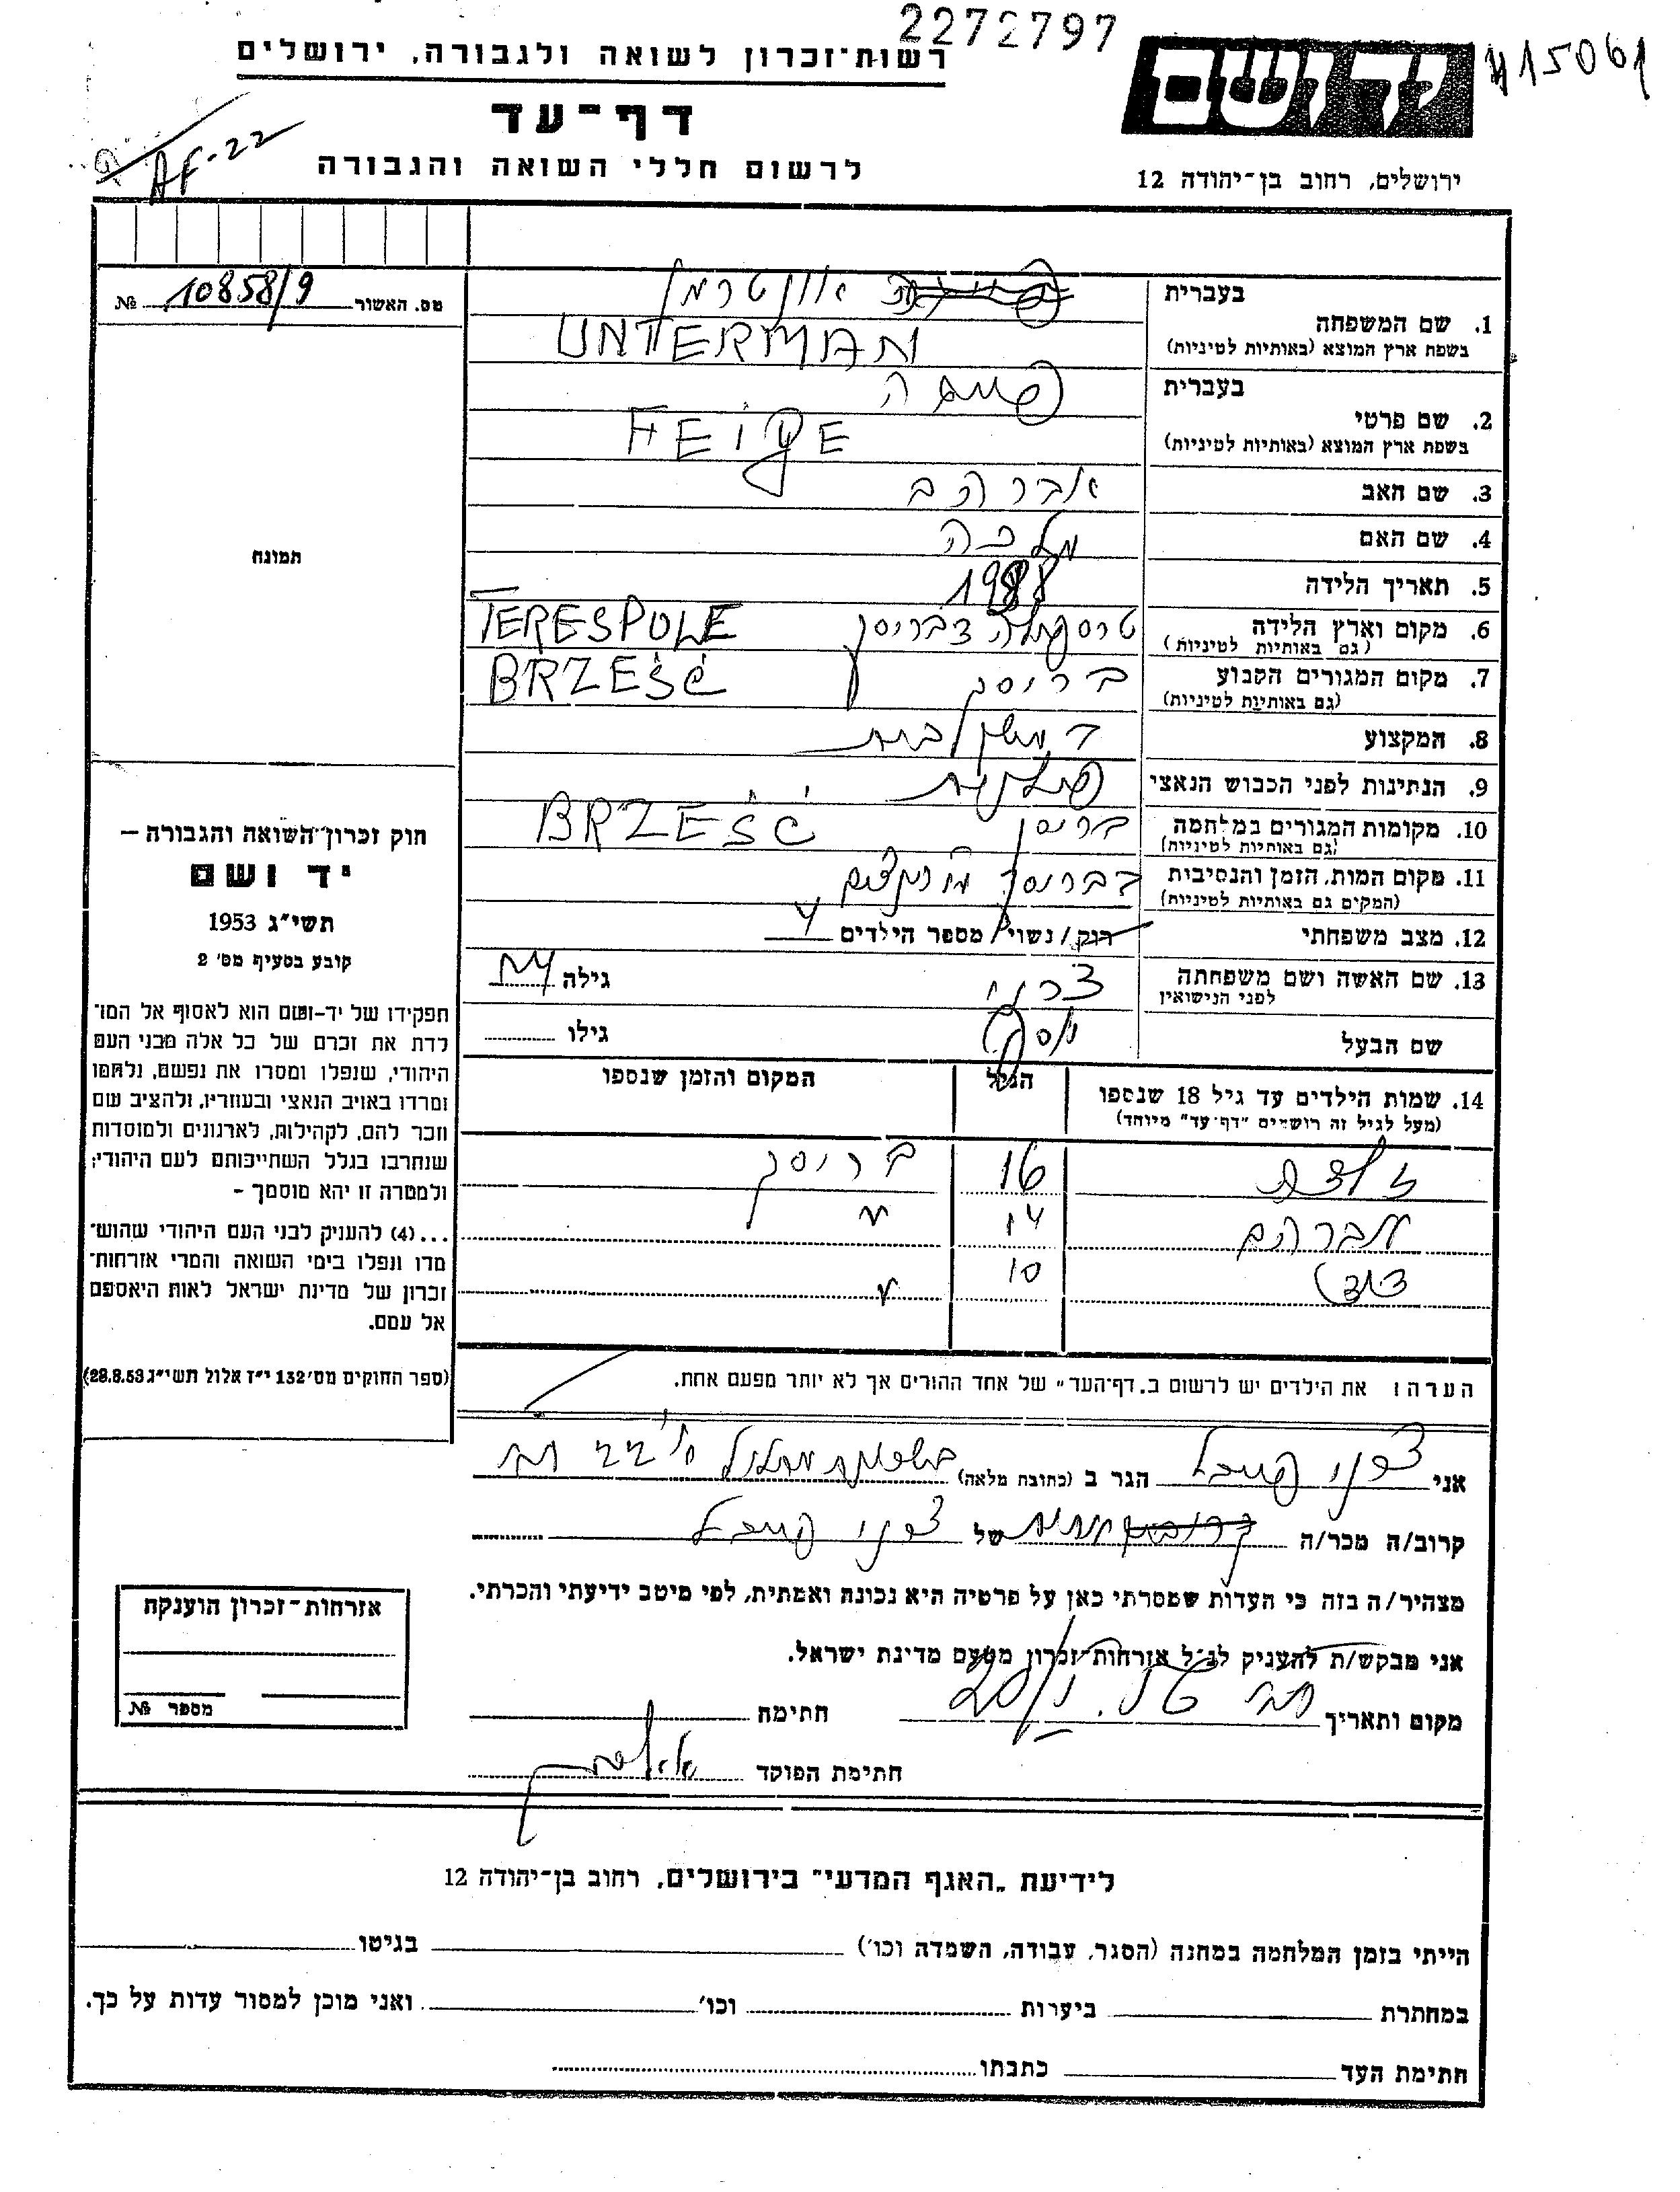 2272797
רשות־זכרון לשואה ולגבורה, ירושלים
ידושם
415061
דף־עד
AF-22
לרשום חללי השואה והגבורה
ירושלים, רחוב בן־יהודה 12
בעברית
אונטרמן
מס. האשור 10858/9 №
1. שם המשפחה
בשפת ארץ המוצא (באותיות לטיניות)
UNTERMAN
בעברית
פייגה
2. שם פרטי
בשפת ארץ המוצא (באותיות לטיניות)
FEIGE
3. שם האב
אברהם
4. שם האם
מלכה
תמונה
5. תאריך הלידה
6. מקום וארץ הלידה
(גם באותיות לטיניות)
TERESPOLE
7. מקום המגורים הקבוע
(גם באותיות לטיניות)
בריסק BRZEŚĆ
8. המקצוע
9. הנתינות לפני הכבוש הנאצי
פולנית
10. מקומות המגורים במלחמה
(גם באותיות לטיניות)
בריסק BRZEŚĆ
11. מקום המות, הזמן והנסיבות
(המקום גם באותיות לטיניות)
12. מצב משפחתי רוק/נשוי/ מספר הילדים 4
13. שם האשה ושם משפחתה
לפני הנישואין
גילה
שם הבעל
יוסף
גילו
14. שמות הילדים עד גיל 18 שנספו
(מעל לגיל זה רושמים "דף־עד" מיוחד)
הגיל
המקום והזמן שנספו
16 בריסק
אברהם 14 "
דוד 10 "
הערה: את הילדים יש לרשום ב„דף־העד" של אחד ההורים אך לא יותר מפעם אחת.
חוק זכרון־השואה והגבורה —
יד ושם
תשי"ג 1953
קובע בסעיף מס' 2
תפקידו של יד-ושם הוא לאסוף אל המו־
לדת את זכרם של כל אלה מבני העם
היהודי, שנפלו ומסרו את נפשם, נלחמו
ומרדו באויב הנאצי ובעוזריו, ולהציב שם
וזכר להם, לקהילות, לארגונים ולמוסדות
שנחרבו בגלל השתייכותם לעם היהודי;
ולמטרה זו יהא מוסמך -
...(4) להעניק לבני העם היהודי שהוש־
מדו ונפלו בימי השואה והמרי אזרחות־
זכרון של מדינת ישראל לאות היאספם
אל עמם.
(ספר החוקים מס' 132 י"ז אלול תשי"ג 28.8.53)
אני הגר ב (כתובת מלאה)
קרוב/ה מכר/ה של
מצהיר/ה בזה כי העדות שמסרתי כאן על פרטיה היא נכונה ואמתית, לפי מיטב ידיעתי והכרתי.
אני מבקש/ת להעניק לנ"ל אזרחות־זכרון מטעם מדינת ישראל.
מקום ותאריך חתימה
חתימת הפוקד
אזרחות־זכרון הוענקה
מספר №
לידיעת „האגף המדעי" בירושלים, רחוב בן־יהודה 12
הייתי בזמן המלחמה במחנה (הסגר, עבודה, השמדה וכו') בגיטו
במחתרת ביערות וכו' ואני מוכן למסור עדות על כך.
חתימת העד כתבתו